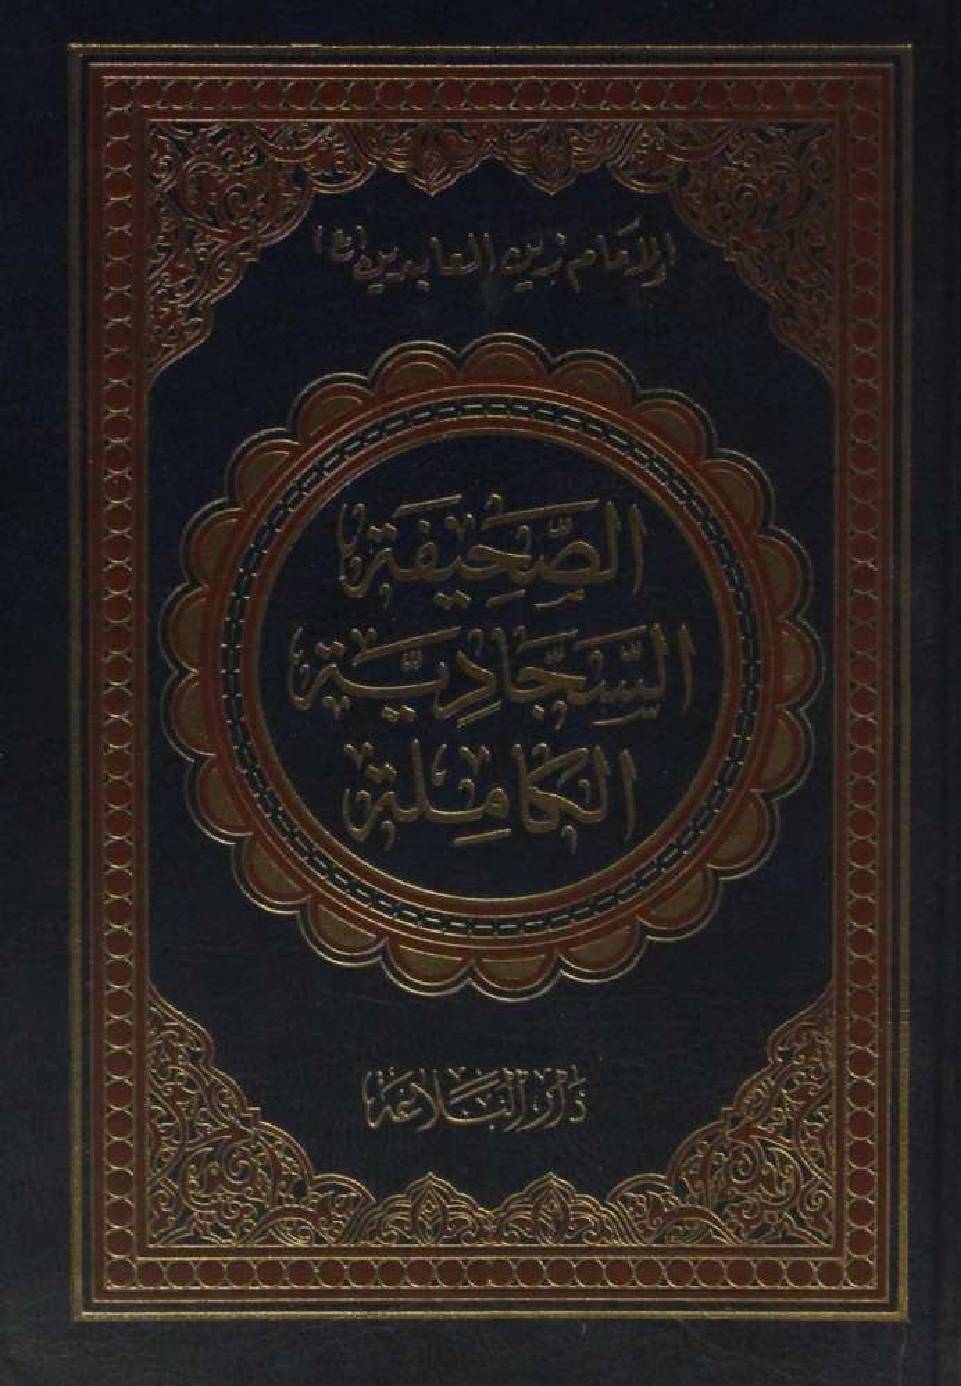 الإمام زين العابدين (ع)
الصَّحِيفَة
السَّجَّادِيَّة
الكَامِلَة
دَارُ البَلَاغَة